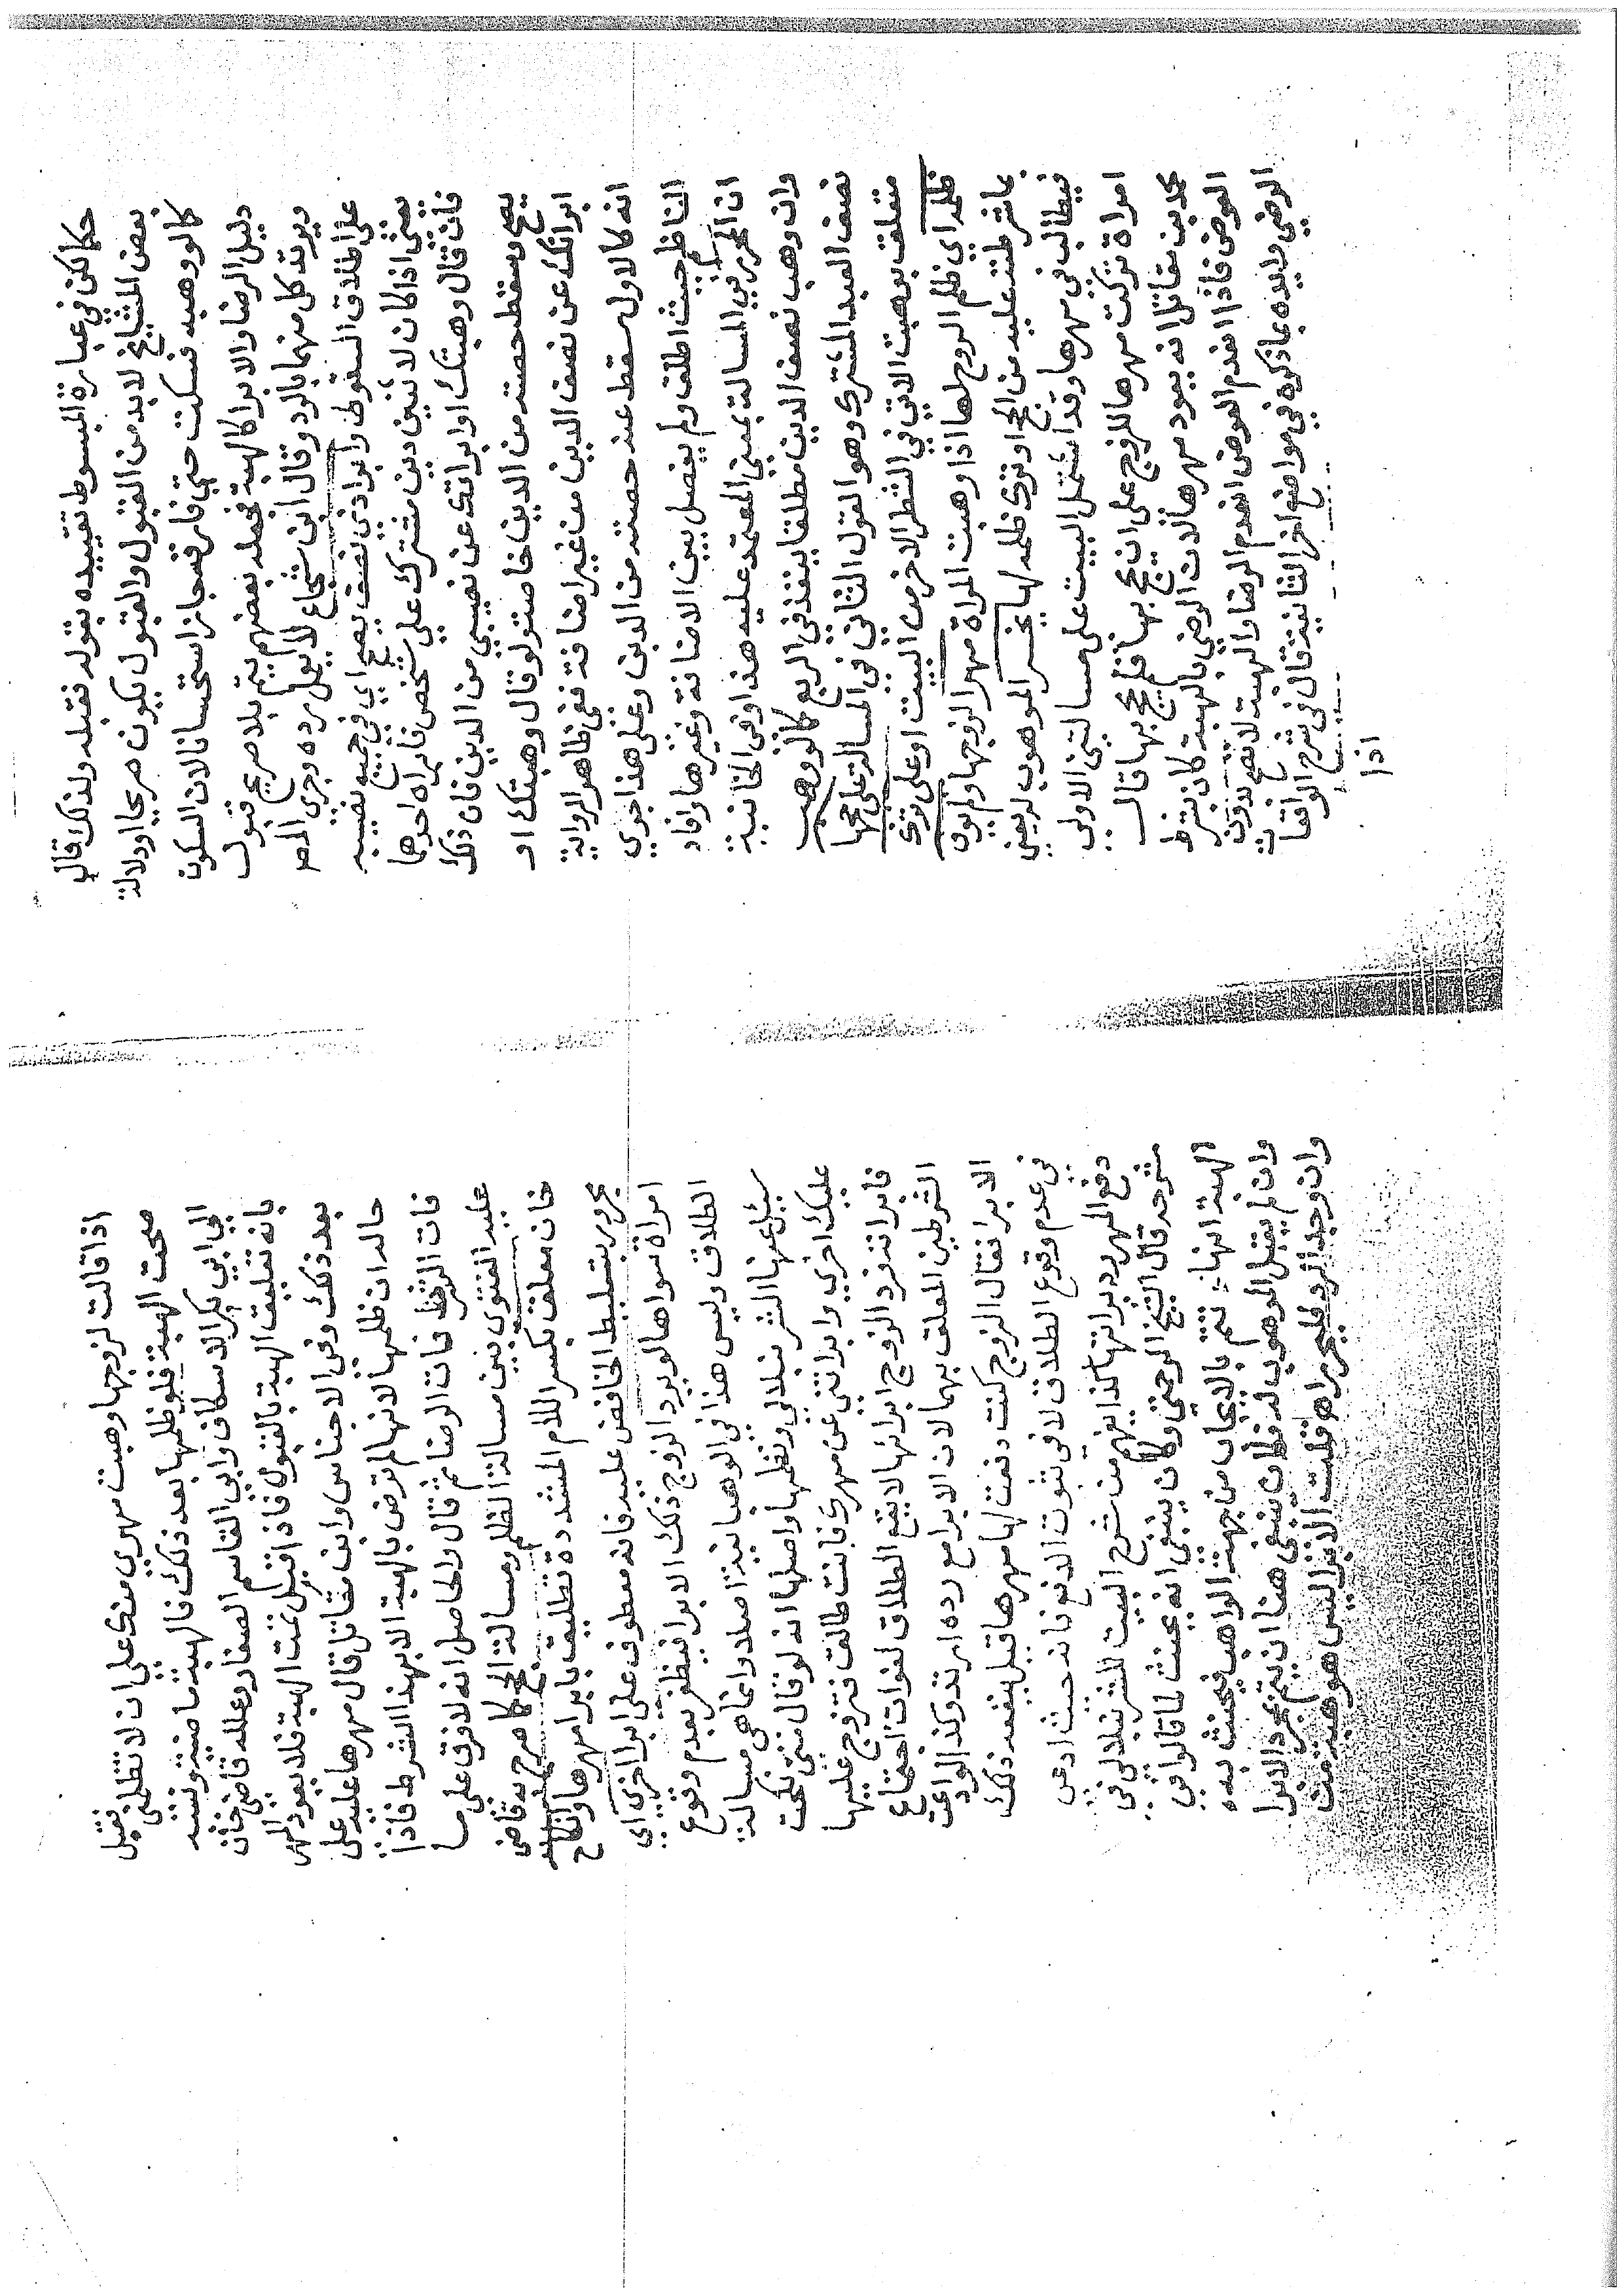 حكما لكن في عبارة المبسوط تقييده بقوله فقبله ولذلك قال
بعض المشايخ لابد من القبول والقبول يكون صريحا او دلالة
كما لو وهبه فسكت حتى فارقه جاز استحسانا لان السكوت
دليل الرضا والابرا كالهبة فجعله بعضهم يتم بلا صريح قبول
ويرتد كل منهما بالرد وقال ابن شجاع لا يعمل رده وجرى المص
على اطلاق السقوط وابرا ذي نصف يصح اي في جميع نصيبه
يعني اذا كان لاثنين دين مشترك على شخص فابراه احدهما
فان قال وهبتك او ابراتك عن نصيبي من الدين فان ذلك
يصح ويسقط حصته من الدين خاصة ولو قال وهبتك او
ابراتك عن نصف الدين من غير اضافة ففي ظاهر الرواية
انه كالاول سقط عنه حصته من الدين وعلى هذا جرى
الناظم حيث اطلق ولم يفصل بين الاضافة وغيرها وافاد
ان المحرر في المسالة بمعنى المعتمد عليه هذا وفي الخانية
وان وهب نصف الدين مطلقا ينفذ في الربع كما لو وهب
نصف العبد المشترك وهو القول الثاني في المسالة على حجها
متعلق بوهبت الاتي في الشطر الاخر من البيت او على ترك
ظلمه اي ظلم الزوج لها اذا وهبت المراة مهر الزوجها ولم يوف
بما شرطت عليه من الحج او ترك ظلمه لها يخسر الموهوب له يعني
فيطالب في مهرها وقد اشتمل البيت على مسالتين الاولى
امراة تركت مهرها للزوج على ان يحج بها فلم يحج بها قال
محمد بن مقاتل انه يعود مهرها لان الرضى بالهبة كان بشرط
العوض فاذا انعدم العوض انعدم الرضا والهبة لا تصح بدون
الرضى وايده بما ذكره في مواضع اخر الثانية قال في شرح الواقعات
اذا
اذا قالت لزوجها وهبت مهري منك على ان لا تظلمني فقبل
صحت الهبة فلو ظلمها بعد ذلك فالهبة ماضية ونسبه
الى ابي بكر الاسكاف وابي القاسم الصفار وعلله قاضي خان
بانه تعليق الهبة بالقبول فاذا قبل تمت الهبة فلا يعود المهر
بعد ذلك وفي الاجناس وابن مقاتل قال مهرها عليه على
حاله ان ظلمها لانها لم ترض بالهبة الا بهذا الشرط فاذا
فات الشرط فات الرضا ثم قال والحاصل انه لا فرق على ما
عليه الفتوى بين مسالة الظلم ومسالة الحج كما صرح به قاضي
خان معلق بكسر اللام المشددة تطليق بابرا مهرها وانكاح
مجرور بتسليط الخافض عليه فانه معطوف على ابرا اخرى اي
امراة سواها لو يرد الزوج ذلك الابرا فيظفر بعدم وقوع
الطلاق وليس هذا في الوهبانية اصله وانما هي مسالة
سئل عنها الشرنبلالي ونظمها واصلها انه لو قال متى نكحت
عليك اخرى وابراتني عن مهرك فانت طالق فتزوج عليها
فابراته فرد الزوج ابرائها لا يقع الطلاق لفوات اجتماع
الشرطين المعلق بهما لان الابرا مع رده ارتد وكذا لو ادعت
الابرا فقال الزوج كنت دفعت لها مهرها قبل ينفعه ذلك
في عدم وقوع الطلاق لا في ثبوت الدفع فانه حيث ادعى
دفع المهر رد براتها كذا يفهم من شرح البيت للشرنبلالي في
شرحه قال الشيخ الرحمتي وكان ينبغي انه يحنث لما قالوا في
الهبة انها تتم بالايجاب من جهة الواهب فيحنث به
وان لم يقبل الموهوب له فكان ينبغي هنا ان يتم بمجرد الابرا
وان وجد الرد فليحرر اهو قلت الابرا ليس هو هبة من